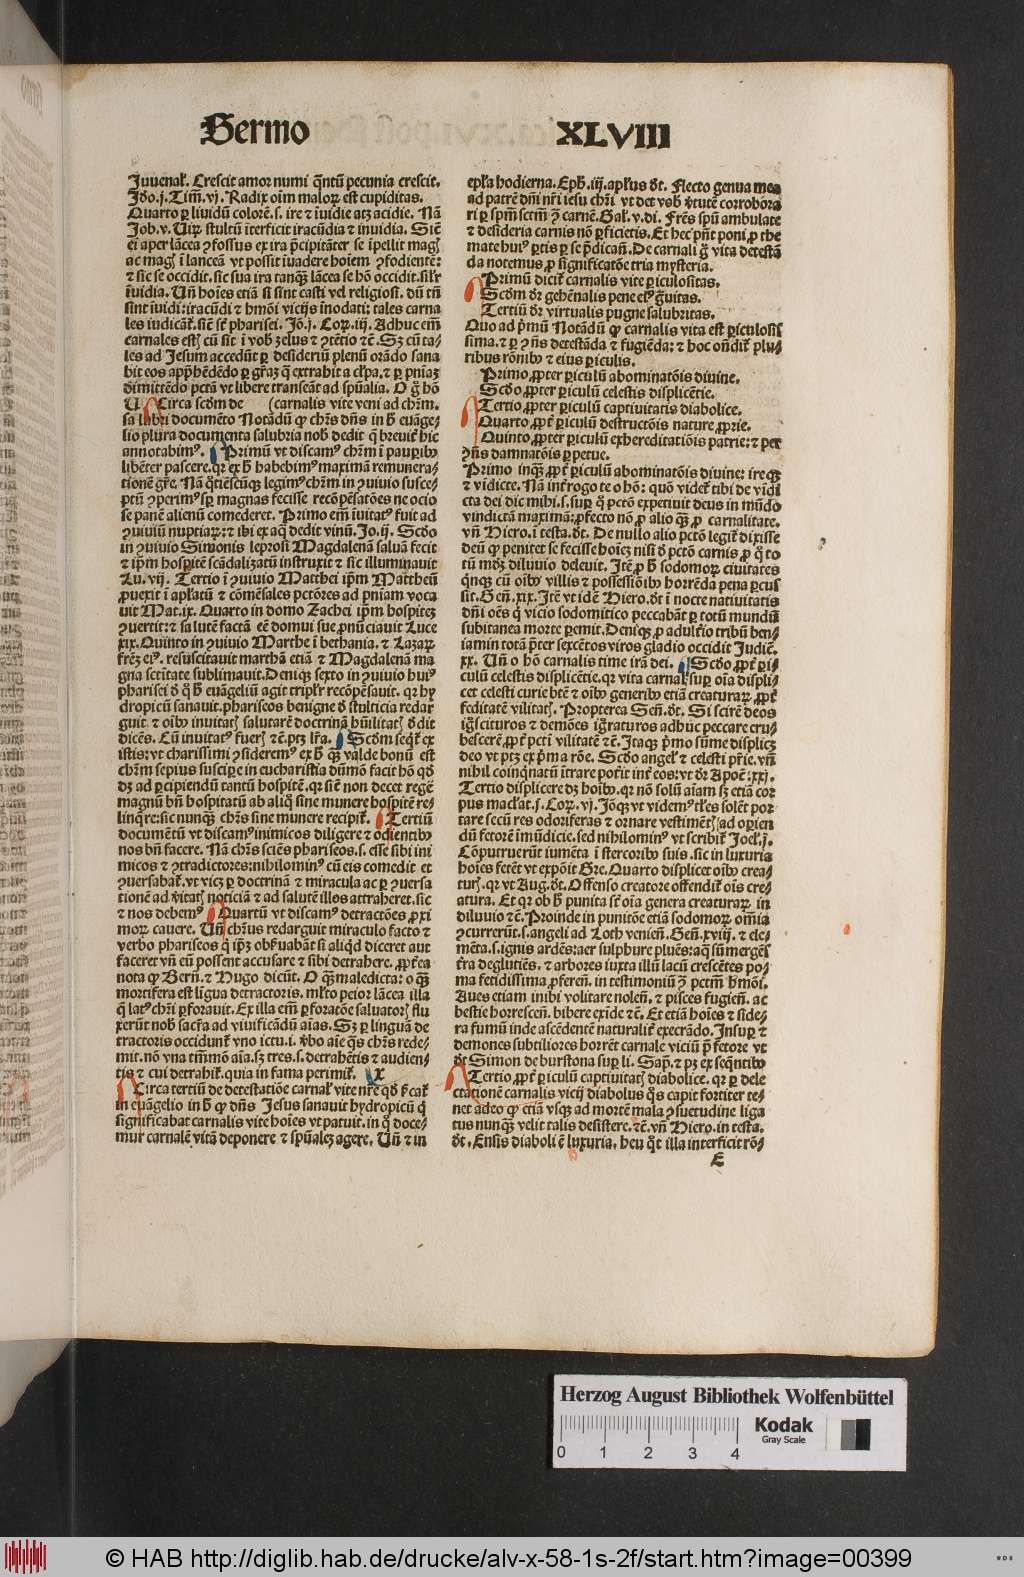 Sermo
XLVIII
Juuenal. Crescit amor numi q̃ntũ pecunia crescit.
Jdo.j. Tim̃. vj. Radix oĩm malorꝝ est cupiditas.
Quarto ꝑ liuidũ colorẽ.s. ire ⁊ ĩuidie atꝫ acidie. Nã
Job.v. Virꝝ stultũ ĩterficit iracũdia ⁊ inuidia. Sic̃
ei aper lãcea ꝯfossus ex ira p̃cipitãter se ĩpellit
ac magl ĩ lanceã vt possit ĩuadere hoiem ꝯfodientẽ:
⁊ sic se occidit. sic sua ira tanqꝫ lãcea se hõ occidit. silr
ĩuidia. Vñ hoĩes etiã si sint casti vel religiosi. dũ tñ
sint ĩuidi: iracũdi ⁊ hmõi vicijs ĩnodati: tales carna
les iudicãt. sic̃ se pharisei. Jõ.j. Corꝝ. iij. Adhuc em̃
carnales cũ sit ĩ vob zelus ⁊ ꝯtẽtio ⁊c̃. Sꝫ cũ ta-
les ad Jesum accedũt ꝑ desideriũ plenũ orãdo sana
bit eos apꝓhẽdẽdo ꝑ gr̃aꝫ q̃ extrahit a cl̃pa. ⁊ ꝑ pniaꝫ
dimittẽdo pctã vt libere transeãt ad sp̃ualia. O g̃ hõ
Circa scdm de (carnalis vite veni ad chr̃m.
sa lubri documẽto Notãdũ ꝙ chr̃s dñs in h̃ euãge-
lio plura documenta salubria nob dedit q̃ breuit̃ hic
annotabimꝰ. Primũ vt discamꝰ chr̃m ĩ pauꝑibꝰ
libẽter pascere. qꝛ ex h̃ habebimꝰ maximã remunera-
tionẽ gr̃e. Nã q̃tiẽscũqꝫ legimꝰ chr̃m in ꝯuiuio susce-
ptũ ꝯperimꝰ sꝑ magnas fecisse recõpẽsatões ne ocio
se panẽ alienũ comederet. Primo em̃ ĩuitatꝰ fuit ad
ꝯuiuiũ nuptiarꝝ: ⁊ ibi ex aq̃ dedit vinũ. Jo.ij. Scdo
in ꝯuiuio Simonis leprosi Magdalenã saluã fecit
⁊ ip̃m hospitẽ scãdalizatũ instruxit ⁊ sic illuminauit
Lu. vij. Tertio ĩ ꝯuiuio Matthei ip̃m Mattheũ
ꝓuexit ĩ apl̃atũ ⁊ cõmẽsales pctõres ad pniam voca
uit Mat.ix. Quarto in domo Zachei ip̃m hospitez
ꝯuertit: ⁊ sa lutẽ factã eẽ domui sue ꝓnũciauit Luce
xix. Quinto in ꝯuiuio Marthe ĩ bethania. ⁊ Lazarꝝ
fr̃eꝫ eiꝰ. resuscitauit marthã etiã ⁊ Magdalenã ma
gna sctitate sublimauit. Deniqꝫ sexto in ꝯuiuio huiꝰ
pharisei ð q̃ h̃ euãgeliũ agit triplr̃ recõpẽsauit. qꝛ hy
dropicũ sanauit. phariseos benigne ð stulticia redar
guit ⁊ oĩbꝰ inuitatl salutarẽ doctrinã hũilitatl ðdit
dicẽs. Cũ inuitatꝰ fuerl ⁊c̃. ptꝫ lr̃a. Scdm seqt̃ ex
istis: vt charissimi ꝯsideremꝰ ex h̃ qꝫ valde bonũ est
chr̃m sepius suscipe in eucharistia dũmõ facit hõ qð
dꝫ ad ꝑcipiendũ tantũ hospitẽ. qꝛ sic̃ non decet regẽ
magnũ bñ hospitatũ ab aliq̃ sine munere hospitẽ re-
linq̃re: sic nunqꝫ chr̃s sine munere recipit̃. Tertiũ
documẽtũ vt discamꝰ inimicos diligere ⁊ odientibꝰ
nos bñ facere. Nã chr̃s sciẽs phariseos. s. esse sibi ini
micos ⁊ ꝯtradictores: nihilominꝰ cũ eis comedit et
ꝯuersabat̃. vt vicꝫ ꝑ doctrinã ⁊ miracula ac ꝑ ꝯuersa
tionẽ ad v̾itatl noticiã ⁊ ad salutẽ illos attraheret. sic
⁊ nos debemꝰ Quartũ vt discamꝰ detractões ꝓxi
morꝝ cauere. Vñ chr̃us redarguit miraculo facto ⁊
verbo phariseos q̃ ip̃ꝫ obẜuabãt si aliqð diceret aut
faceret vñ cũ possent accusare ⁊ sibi detrahere. ꝓpt̃ea
nota ꝙ Berñ. ⁊ Hugo dicũt. O qꝫ maledicta: o qꝫ
mortifera est lĩgua detractoris. ml̃to peior lãcea illa
q̃ latꝰ chr̃i ꝑforauit. Ex illa em̃ ꝑforatõe saluatorl flu
xerũt nob sacr̃a ad viuificãdũ aĩas. Sꝫ ꝑ linguã de
tractoris occidunt̃ vno ictu.i. v̾bo aĩe q̃s chr̃s rede-
mit. nõ vna tm̃mõ aĩa. sꝫ tres. s. detrahẽtis ⁊ audien-
tis ⁊ cui detrahit̃. quia in fama perimit̃. X
Circa tertiũ de detestatiõe carnal vite nr̃e qð p̃cat̃
in euãgelio in h̃ ꝙ dñs Jesus sanauit hydropicũ q̃
significabat carnalis vite hoĩes vt patuit. in q̃ doce-
mur carnalẽ vitã deponere ⁊ sp̃ualeꝫ agere. Vñ ⁊ in
epl̃a hodierna. Eph. iij. apl̃us ðt. Flecto genua mea
ad patrẽ dñi nr̃i iesu chr̃i vt det vob v̾tutẽ corrobora
ri ꝑ sp̃m sctm̃ ꝯ carnẽ. Gal. v. di. Fr̃es sp̃u ambulate
⁊ desideria carnis nõ ꝑficietis. Et hec pñt poni ꝓ the
mate huiꝰ ꝑtis ꝑ se p̃dicañ. De carnali g̃ vita detestã
da notemus ꝓ significatõe tria mysteria.
Primũ dicit̃ carnalis vite ꝑiculositas.
Scdm ðr gehẽnalis pene elꝰ g̃uitas.
Tertiũ ðr virtualis pugne salubritas.
Quo ad p̃mũ Notãdũ ꝙ carnalis vita est ꝑiculosis
sima. ⁊ ꝑ ꝯñs detestãda ⁊ fugiẽda: ⁊ hoc oñdit̃ plu-
ribus rõnibꝰ ⁊ eius ꝑiculis.
Primo ꝓpter ꝑiculũ abominatõis diuine.
Scdo ꝓpter ꝑiculũ celestis displicẽtie.
Tertio ꝓpter ꝑiculũ captiuitatis diabolice.
Quarto ꝓpt̃ ꝑiculũ destructõis nature ꝓprie.
Quinto ꝓpter ꝑiculũ exhereditatiõis patrie: ⁊ per
ꝯñs damnatõis ꝑpetue.
Primo inqꝫ ꝓpt̃ ꝑiculũ abominatõis diuine: ireqꝫ
⁊ vidicte. Nã int̃rogo te o hõ: quõ videt̃ tibi de vĩdi
cta dei dic mihi. s. suꝑ q̃ pctõ expetiuit deus in mũdo
vindictã maximã: ꝓfecto nõ ꝓ alio qꝫ ꝓ carnalitate.
vñ Hiero. ĩ testa. ðt. De nullo alio pctõ legit̃ dixisse
deũ ꝙ penitet se fecisse hoĩeꝫ nisi ð pctõ carnis ꝓ q̃ to
tũ mũdꝫ diluuio deleuit. Jtẽ ꝓ h̃ sodomorꝝ ciuitates
q̃nqꝫ cũ oĩbꝰ villis ⁊ possessiõibꝰ horrẽda pena ꝑcus
sit. Geñ. xix. Jtẽ vt idẽ Hiero. ðt ĩ nocte natiuitatis
dñi oẽs q̃ vicio sodomitico peccabãt ꝑ totũ mundũ
subitanea morte ꝑemit. Deniqꝫ ꝓ adult̃io tribũ ben-
iamin totã p̃ter sexcẽtos viros gladio occidit Judiẽ.
xx. Vñ o hõ carnalis time irã dei. Scdo ꝓpt̃ ꝑi-
culũ celestis displicẽtie. qꝛ vita carnal suꝑ oĩa displi-
cet celesti curie btẽ ⁊ oĩbꝰ generibꝰ etiã creaturarꝝ ꝓpt̃
feditatẽ vilitatl. Propterea Señ. ðt. Si scirẽ deos
ig̃scituros ⁊ demões ig̃raturos adhuc peccare eru-
bescerẽ ꝓpt̃ pcti vilitatẽ ⁊c̃. Jtaqꝫ p̃mo sũme displicꝫ
deo vt ptꝫ ex p̃ma rõe. Scdo angel ⁊ celesti pr̃ie. vñ
nihil coinq̃natũ ĩtrare põt in̾t eos: vt ðr Apoc̃. xxj.
Tertio displicere dꝫ hoĩbꝰ. qꝛ nõ solũ aĩam sꝫ etiã cor
pus maclat.j. Corꝝ. vj. Jõqꝫ vt videmꝰ tl̃es solẽt por
tare secũ res odoriferas ⁊ ornare vestimẽtl ad oꝑien
dũ fetorẽ ĩmũdicie. sed nihilominꝰ vt scribit̃ Joel.j.
Cõputruerũt iumẽta ĩ stercoribꝰ suis. sic in luxuria
hoĩes fetẽt vt expõit Gre. Quarto displicet oĩbꝰ crea-
turl. qꝛ vt Aug. ðt. Offenso creatore offendit̃ oĩs cre-
atura. Et qꝛ ob h̃ punita sẽ oĩa genera creaturarꝝ in
diluuio ⁊c̃. Proinde in punitõe etiã sodomorꝝ om̃ia
ꝯcurrerũt. s. angeli ad Loth venieñ. Geñ. xviij. ⁊ ele-
mẽta. s. ignis ardẽs: aer sulphure pluẽs: aq̃ sũmergẽs
t̃ra deglutiẽs. ⁊ arbores iuxta illũ lacũ crescẽtes po-
ma fetidissima ꝓfereñ. in testimoniũ ꝯ pctm̃ hm̃õi.
Aues etiam inibi volitare noleñ. ⁊ pisces fugieñ. ac
bestie horresceñ. bibere exĩde ⁊c̃. Et etiã hoĩes ⁊ side-
ra fumũ inde ascẽdentẽ naturalit̃ execrãdo. Insuꝑ ⁊
demones subtiliores horrẽt carnale viciũ p̃ fetore vt
ðt Simon de burstona suꝑ li. Sap̃. ⁊ pꝫ ex seq̃ntibꝰ
Tertio ꝓpt̃ ꝑiculũ captiuitatl diabolice. qꝛ ꝑ dele
ctationẽ carnalis vicij diabolus q̃s capit fortiter te-
net adeo ꝙ etiã vsqꝫ ad mortẽ mala ꝯsuetudine liga
tus nunqꝫ velit talis desistere. ⁊c̃. vñ Hiero. in testa.
ðt. Ensis diaboli ẽ luxuria. heu q̃t illa interficit rõ-
E
Herzog August Bibliothek Wolfenbüttel
Kodak
Gray Scale
0 1 2 3 4
© HAB http://diglib.hab.de/drucke/alv-x-58-1s-2f/start.htm?image=00399